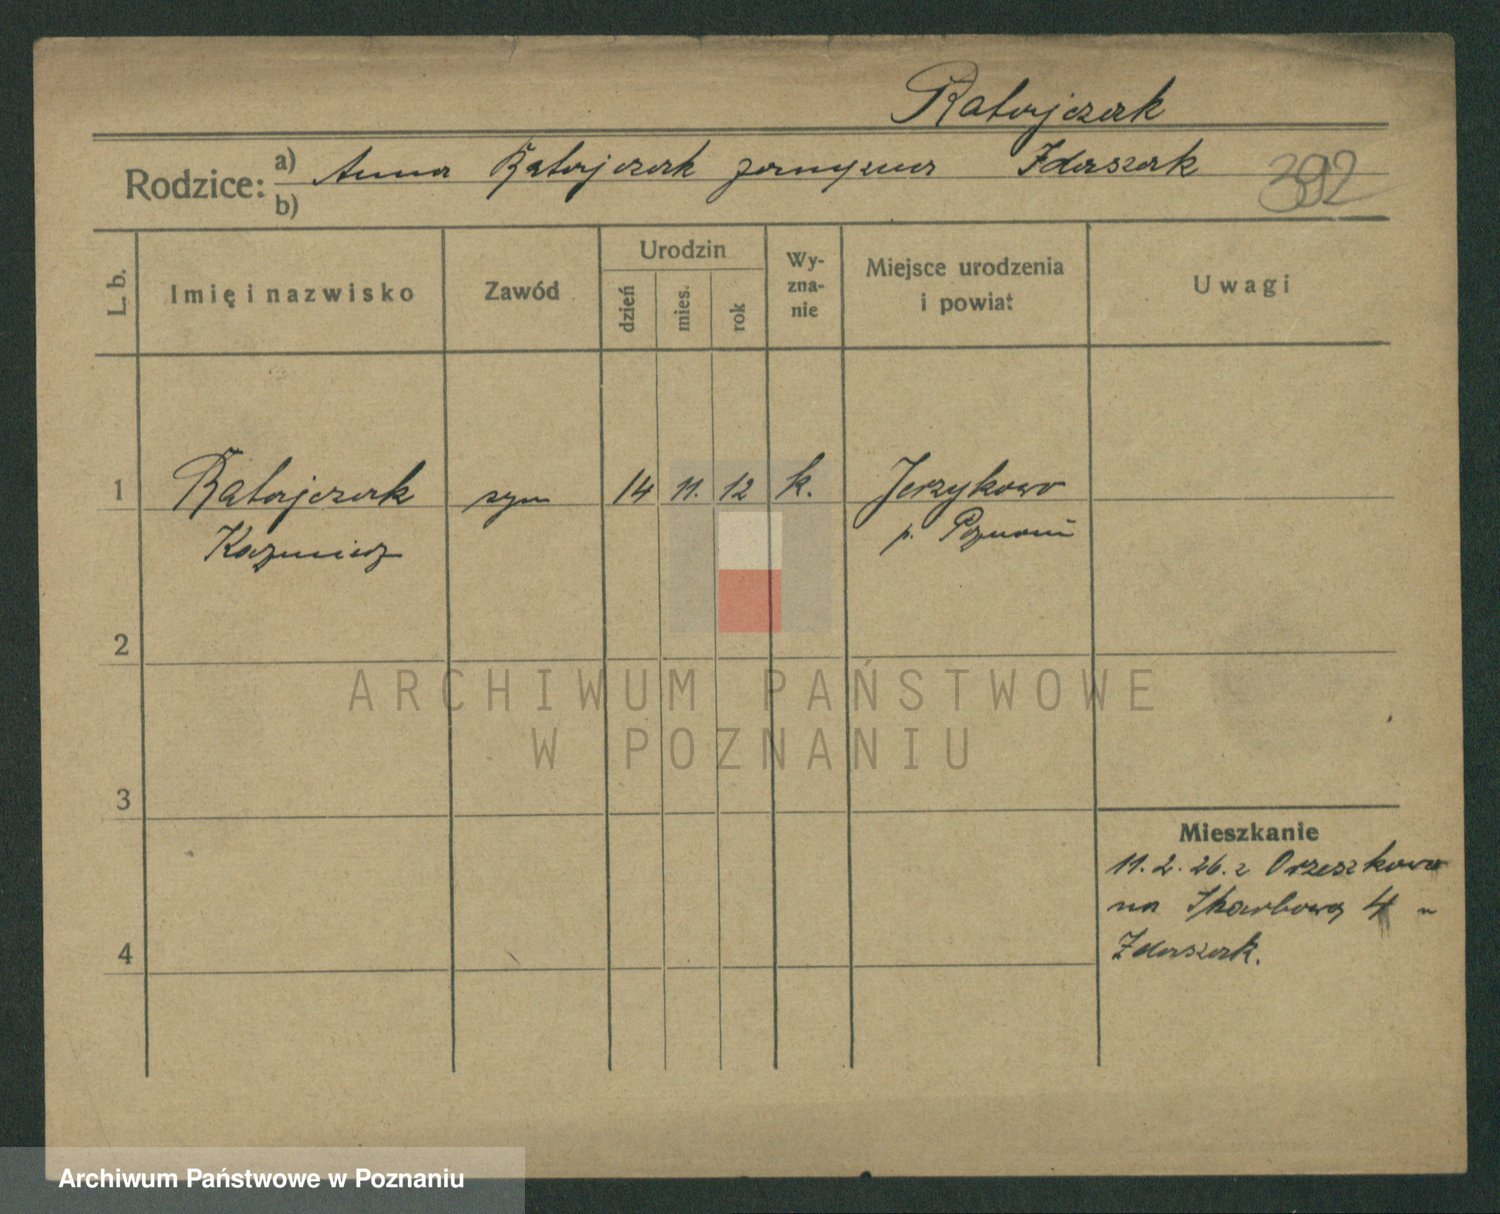 Ratajczak
Rodzice: a) Anna Ratajczak zamężna Zdaszak
b)
392
L. b.
Imię i nazwisko
Zawód
Urodzin
dzień
mies.
rok
Wy-
zna-
nie
Miejsce urodzenia
i powiat
Uwagi
1 Ratajczak syn 14 11. 12 k. Jerzykowo
Kazimierz p. Poznań
2
3
4
Mieszkanie
11. 2. 26. z Orzeszkowo
na Skarbową 4 u
Zdaszak.
ARCHIWUM PAŃSTWOWE
W POZNANIU
Archiwum Państwowe w Poznaniu